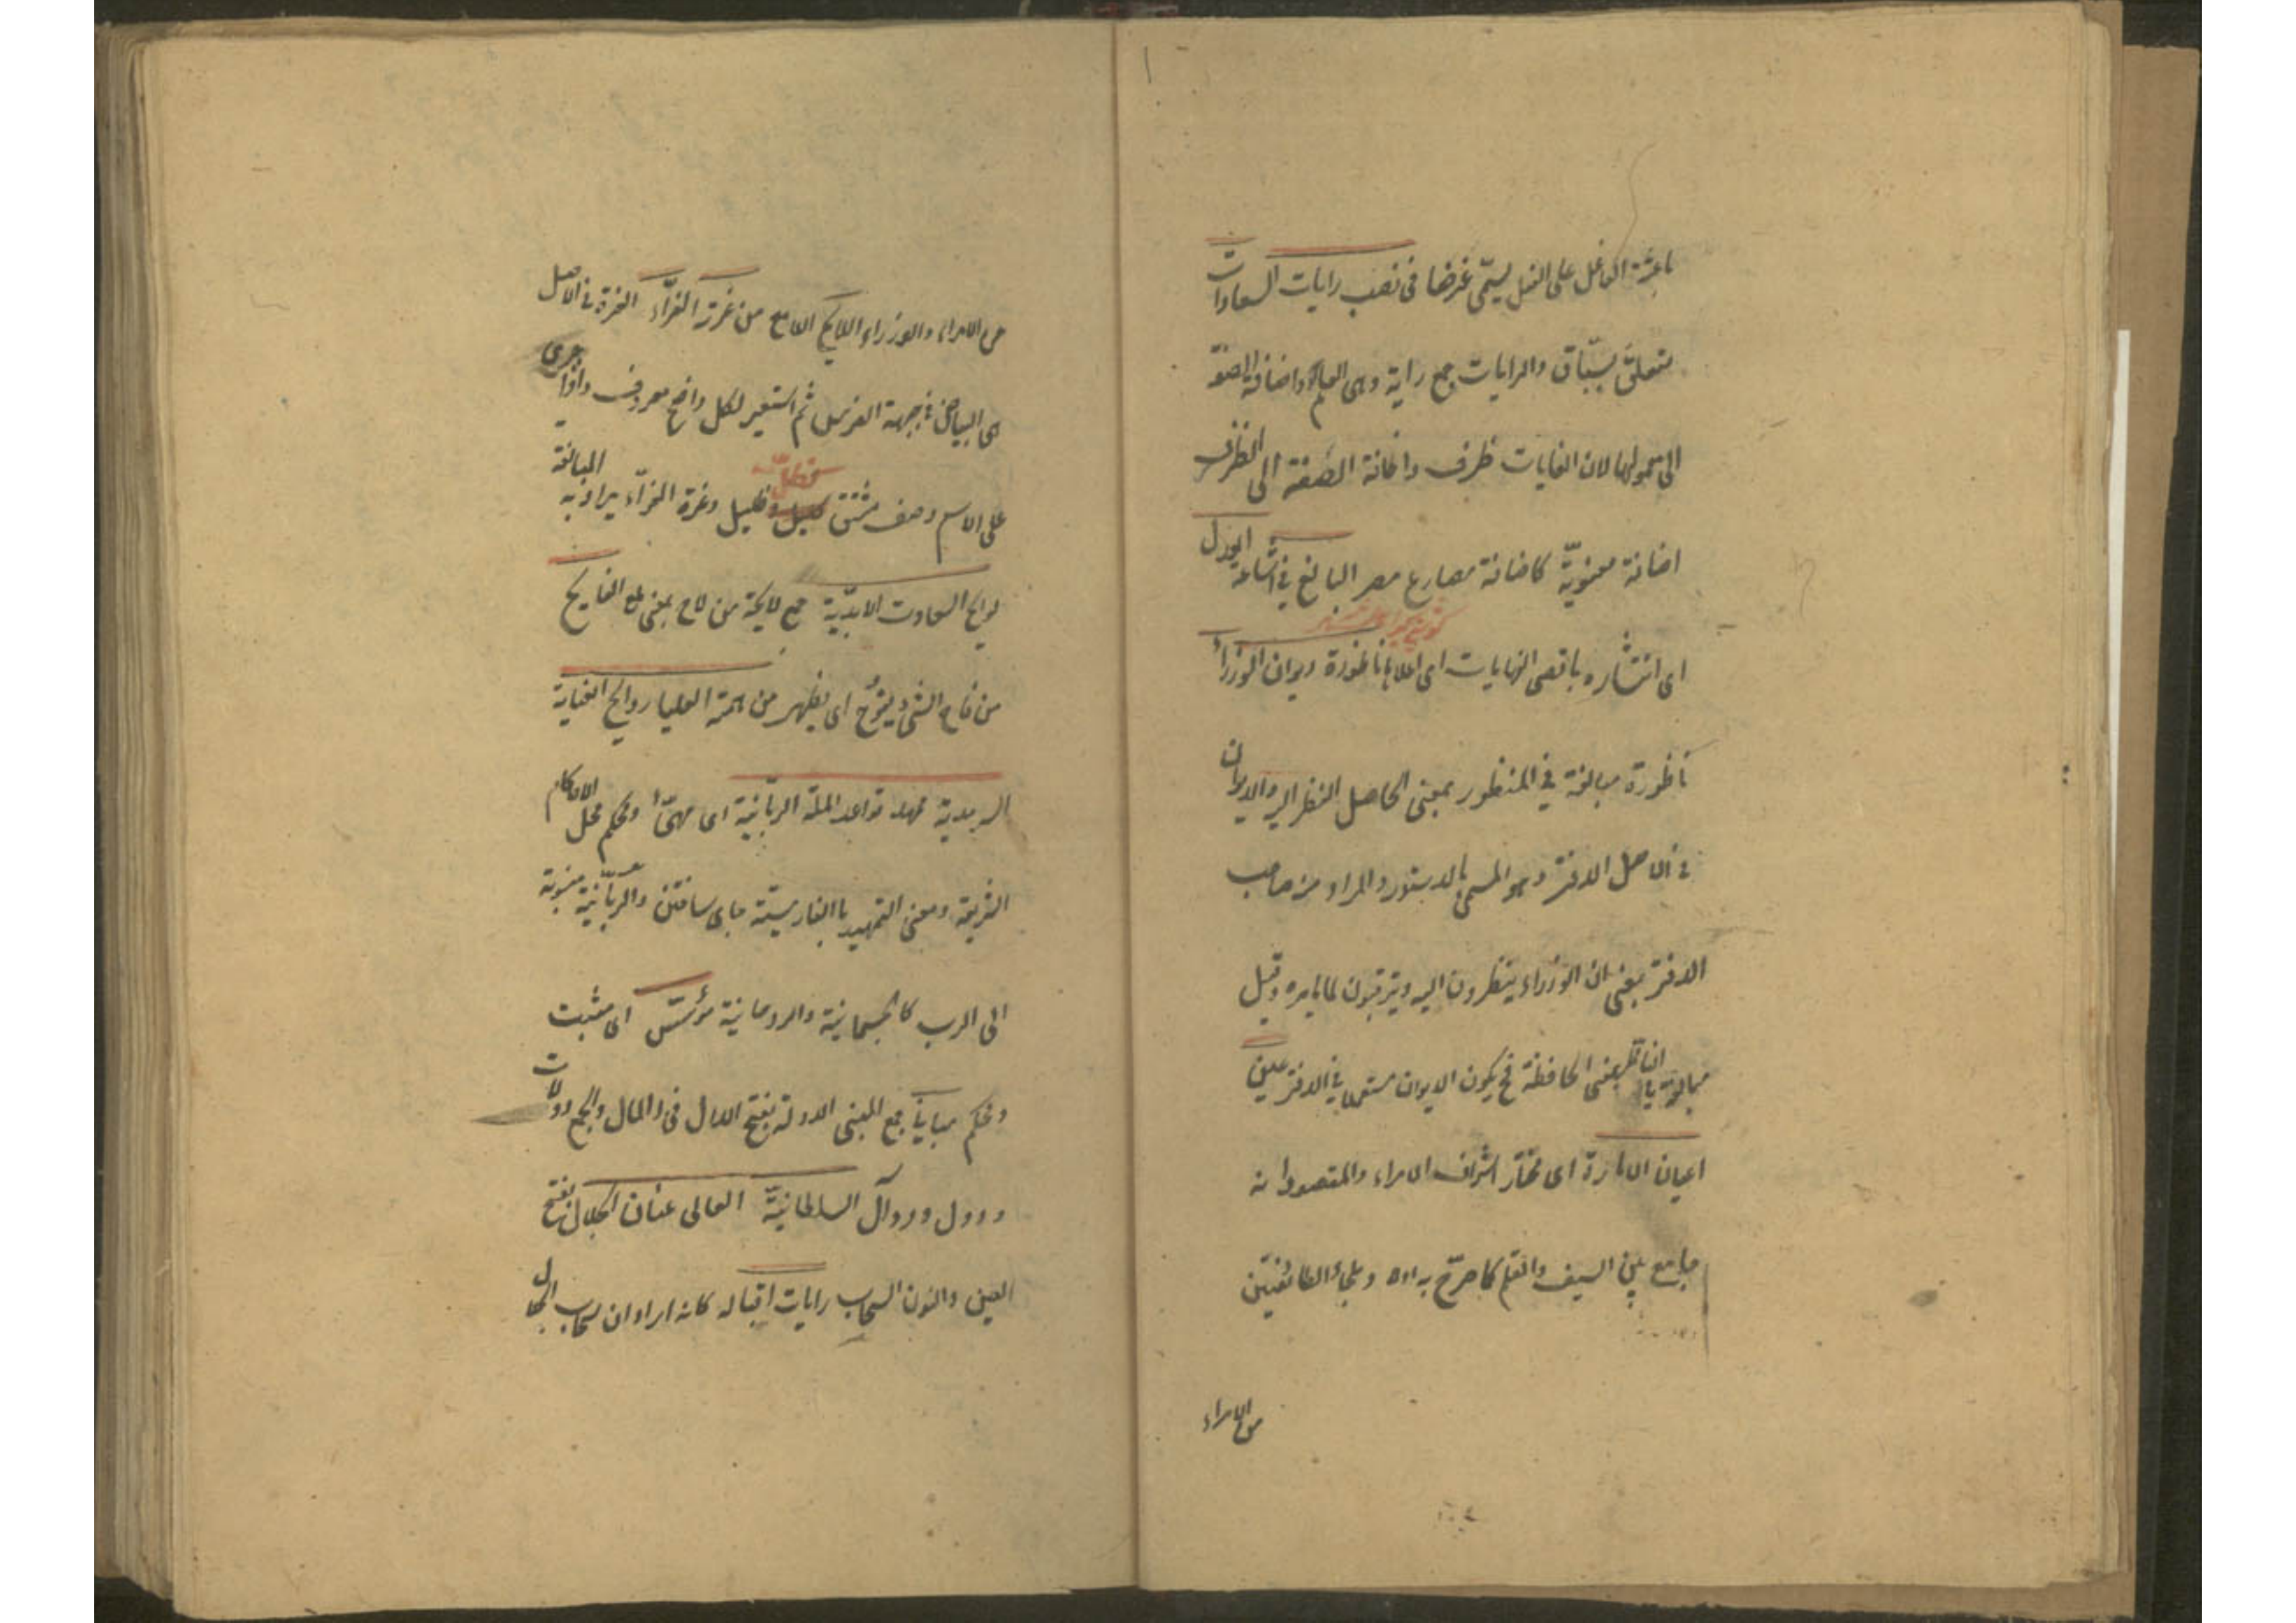 باعثة الفاعل على الفعل يسمّى غرضا فى نصب رايات السعادات
متعلق بسبّاق والرايات جمع راية وهى العلم واضافة الصفة
الى معمولها لان الغايات ظرف واضافة الصفة الى الظرف
اضافة معنويّة كاضافة مصارع مصر البالغ فى اشاعة العدل
اى انتشاره باقصى النهايات اى اعلاها ناظورة ديوان الوزراء
ناظورة مبالغة فى المنظور بمعنى الحاصل النظر اليه والديوان
فى الاصل الدفتر وهو المسمى بالدستور والمراد منه صاحب
الدفتر بمعنى ان الوزراء ينظرون اليه ويترقبون لما يأمره وقيل
مبالغة الناظر بمعنى الحافظة فح يكون الديوان مستعملا فى الدفتر عين
اعيان الامارة اى مختار اشراف الامراء والمقصود انه
جامع بين السيف والقلم كما صرّح به وملجاء الطائفتين
من الامراء
من الامراء والوزراء اللايح اللامع من غرته الغرّاء الغرة فى الاصل
هى البياض فى جبهة الفرس ثم استعير لكل واضح معروف واذا جرى
على الاسم وصف مشتق كظل ظليل وغرة الغرّاء يراد به المبالغة
لوايح السعادت الابديّة جمع لايحة من لاح بمعنى لمع الفايح
من فاح الشئ يفوح اى يظهر من همته العليا روايح العناية
السرمدية ممهد قواعد الملة الربّانية اى مهيّأ ومحكم محل الاحكام
الشريعة ومعنى التمهيد باالفارسيّة جاى ساختن والربّانيّة منسوبة
الى الرب كالجسمانية والروحانية مؤسّس اى مثبت
ومحكم مبانى جمع المبنى الدولة بفتح الدال فى المال والجمع دولات
ودول ودوآل السلطانيّة العالى عنان الجلال بفتح
العين والنون السحاب رايات اقباله كانه اراد ان سحاب الجلال